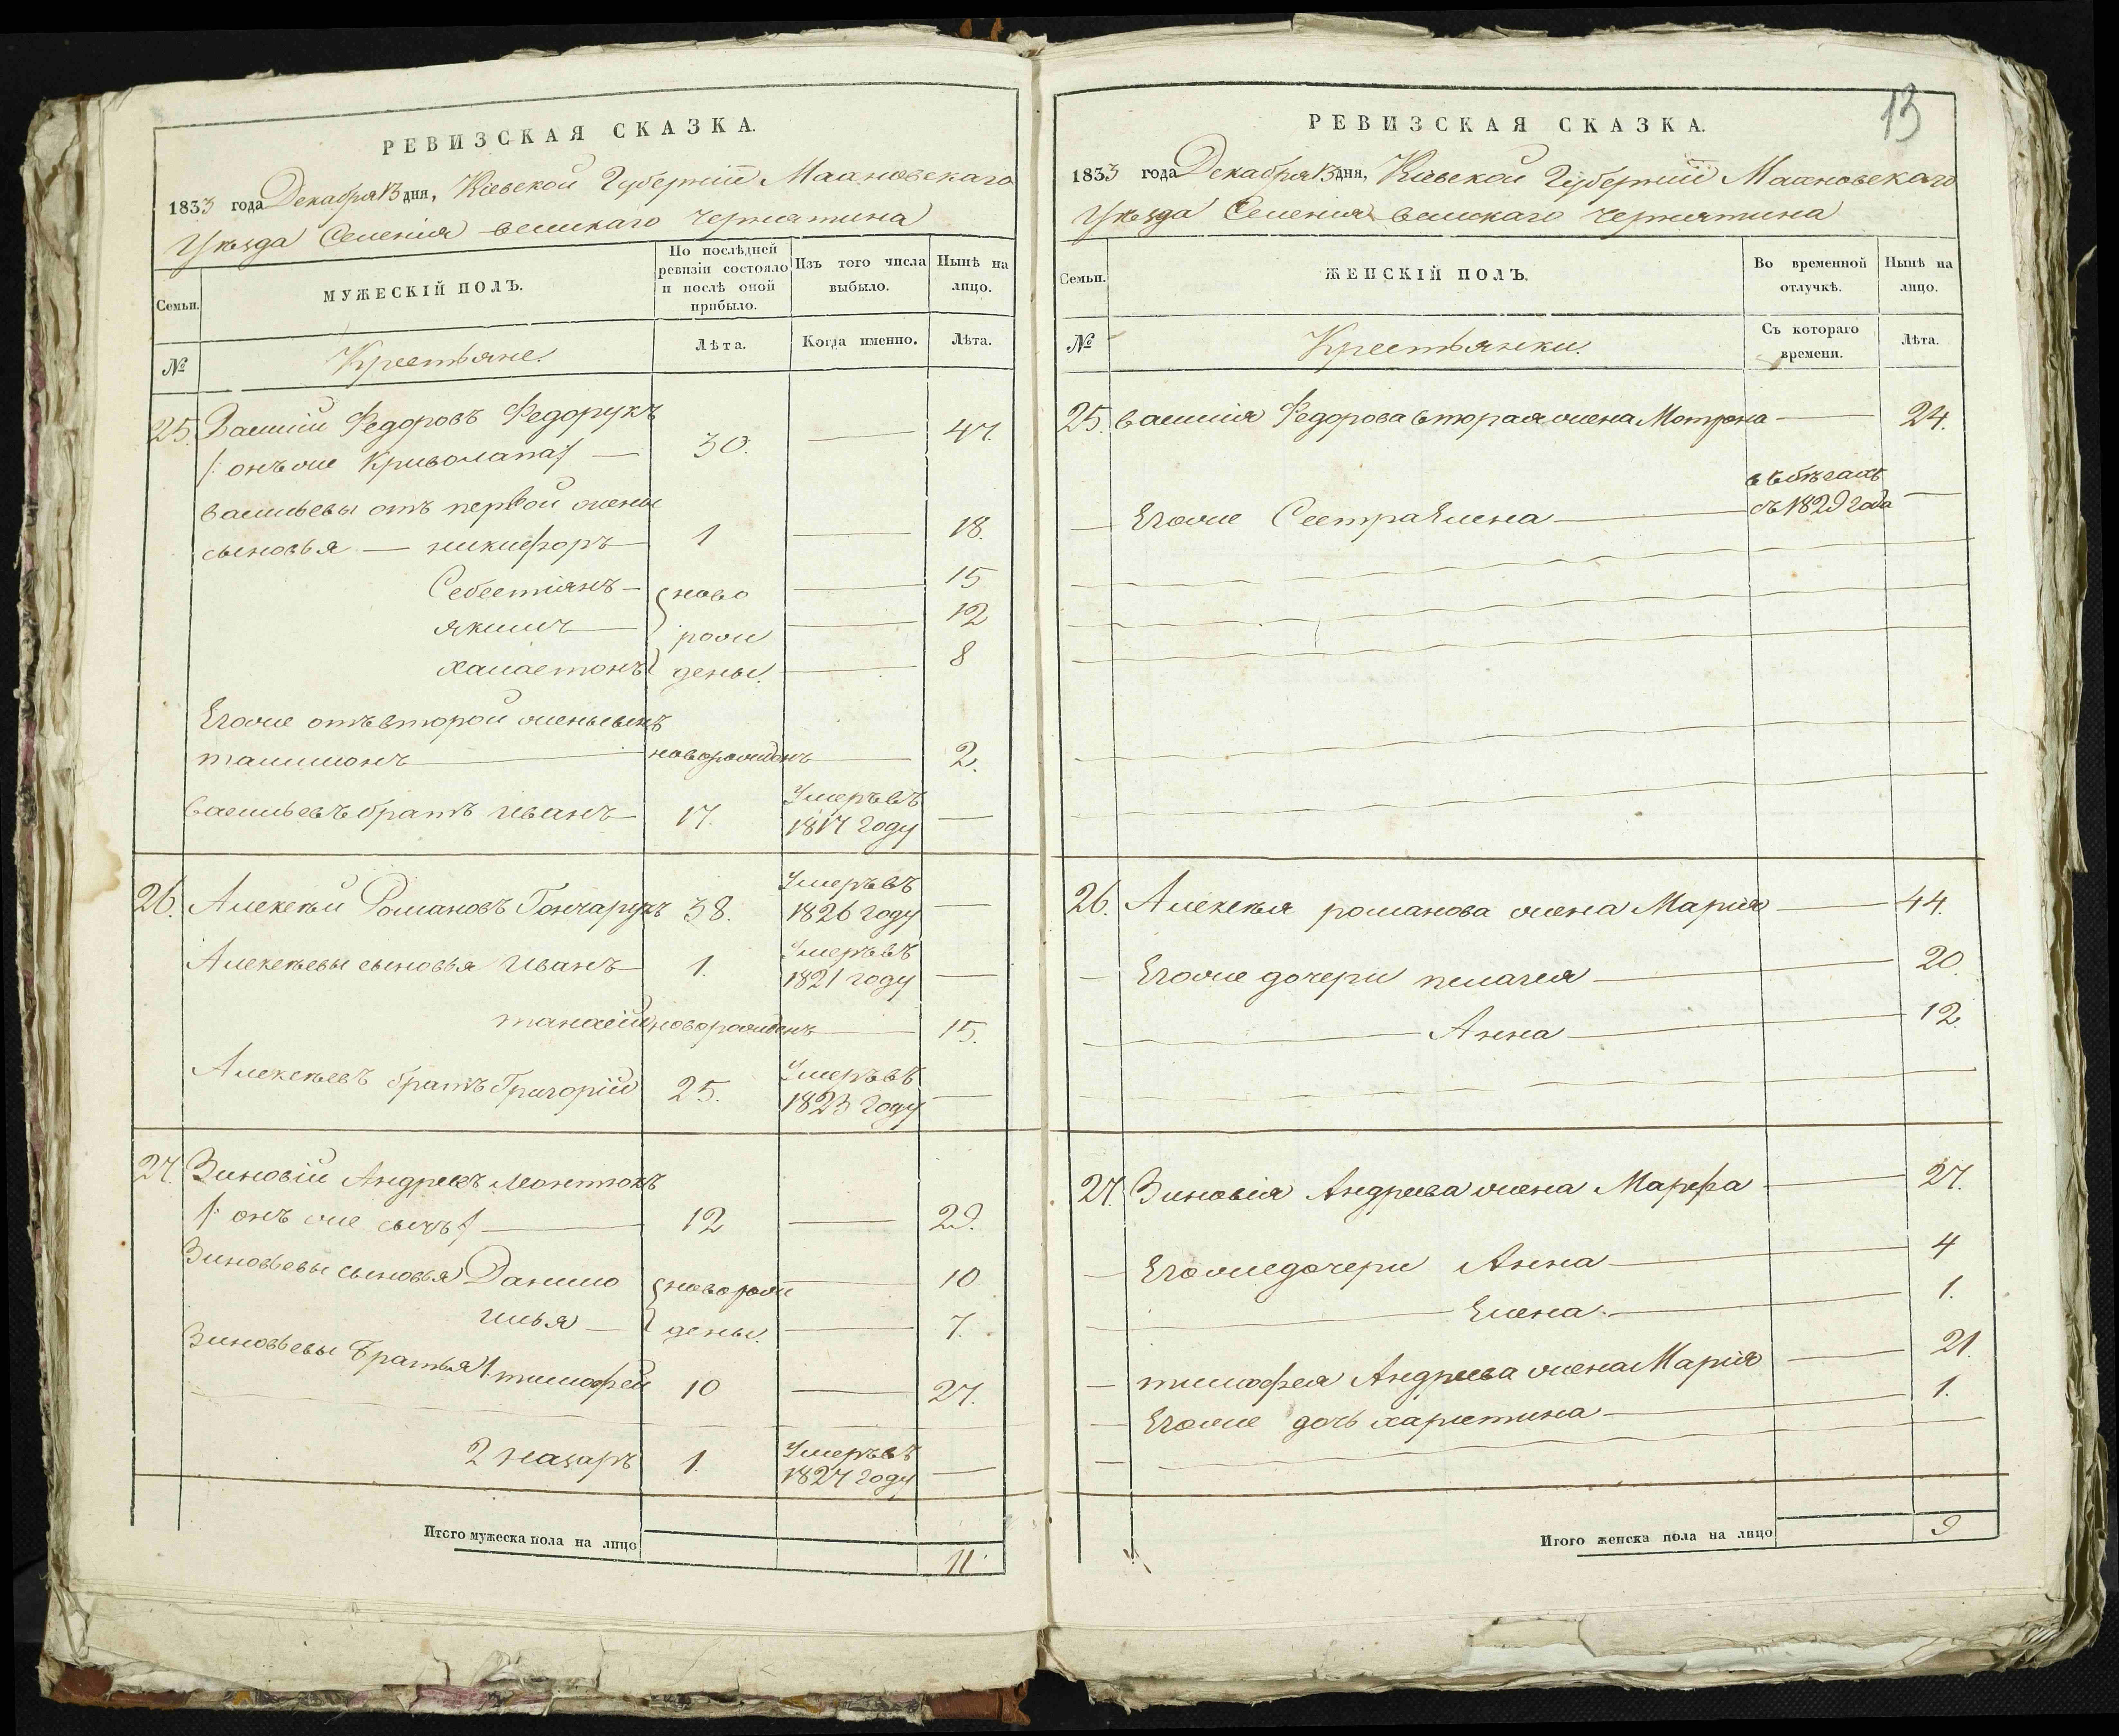 РЕВИЗСКАЯ СКАЗКА.
1833 года Декабря 13 дня, Кіевской Губерніи Махновскаго
Уѣзда Селенія великаго чернятина
Семьи.
МУЖЕСКІЙ ПОЛЪ.
По послѣдней ревизіи состояло и послѣ оной прибыло.
Изъ того числа выбыло.
Нынѣ на лицо.
№
Крестьяне.
Лѣта.
Когда именно.
Лѣта.
25. Василій Федоровъ Федорукъ
/: онъ же Криволапа :/ — 30. — 47.
васильевы отъ первой жены
сыновья — никифоръ — 1 — 18.
Себестіянъ — ново — 15
якимъ — рож — 12
халастонъ дены. — 8
Егоже отъ второй жены сынъ
новорожденъ — 2.
васильевъ братъ иванъ — 17. Умеръ въ
1817 году —
26. Алексѣй Романовъ Гончарукъ 38. Умеръ въ
1826 году —
Алексѣевы сыновья иванъ — 1. Умеръ въ
1821 году —
танасій новорожденъ — 15.
Алексѣевъ братъ Григорій 25. Умеръ въ
1823 году —
27. Зиновій Андреевъ Леонтюкъ
/: онъ же сычъ :/ — 12 — 29.
Зиновьевы сыновья Данило новорож — 10
илья — дены. — 7.
Зиновьевы братья 1. тимофей 10 — 27.
2 назаръ 1. Умеръ въ
1827 году —
Итого мужеска пола на лицо 11.
13
РЕВИЗСКАЯ СКАЗКА.
1833 года Декабря 13 дня, Кіевской Губерніи Махновскаго
Уѣзда Селенія великаго чернятина
Семьи.
ЖЕНСКІЙ ПОЛЪ.
Во временной отлучкѣ.
Нынѣ на лицо.
№
Крестьянки.
Съ котораго времени.
Лѣта.
25. василія Федорова вторая жена Мотрона — 24.
въ бѣгахъ
— Егоже Сестра Елена — съ 1829 года —
26. Алексѣя романова жена Марія — 44.
— Егоже дочери пелагея — 20.
— Анна — 12.
27. Зиновія Андреева жена Марфа — 27.
— Егоже дочери Анна — 4
— Елена — 1.
— тимофея Андреева жена Марія — 21.
— Егоже дочь харистина — 1.
Итого женска пола на лицо 9